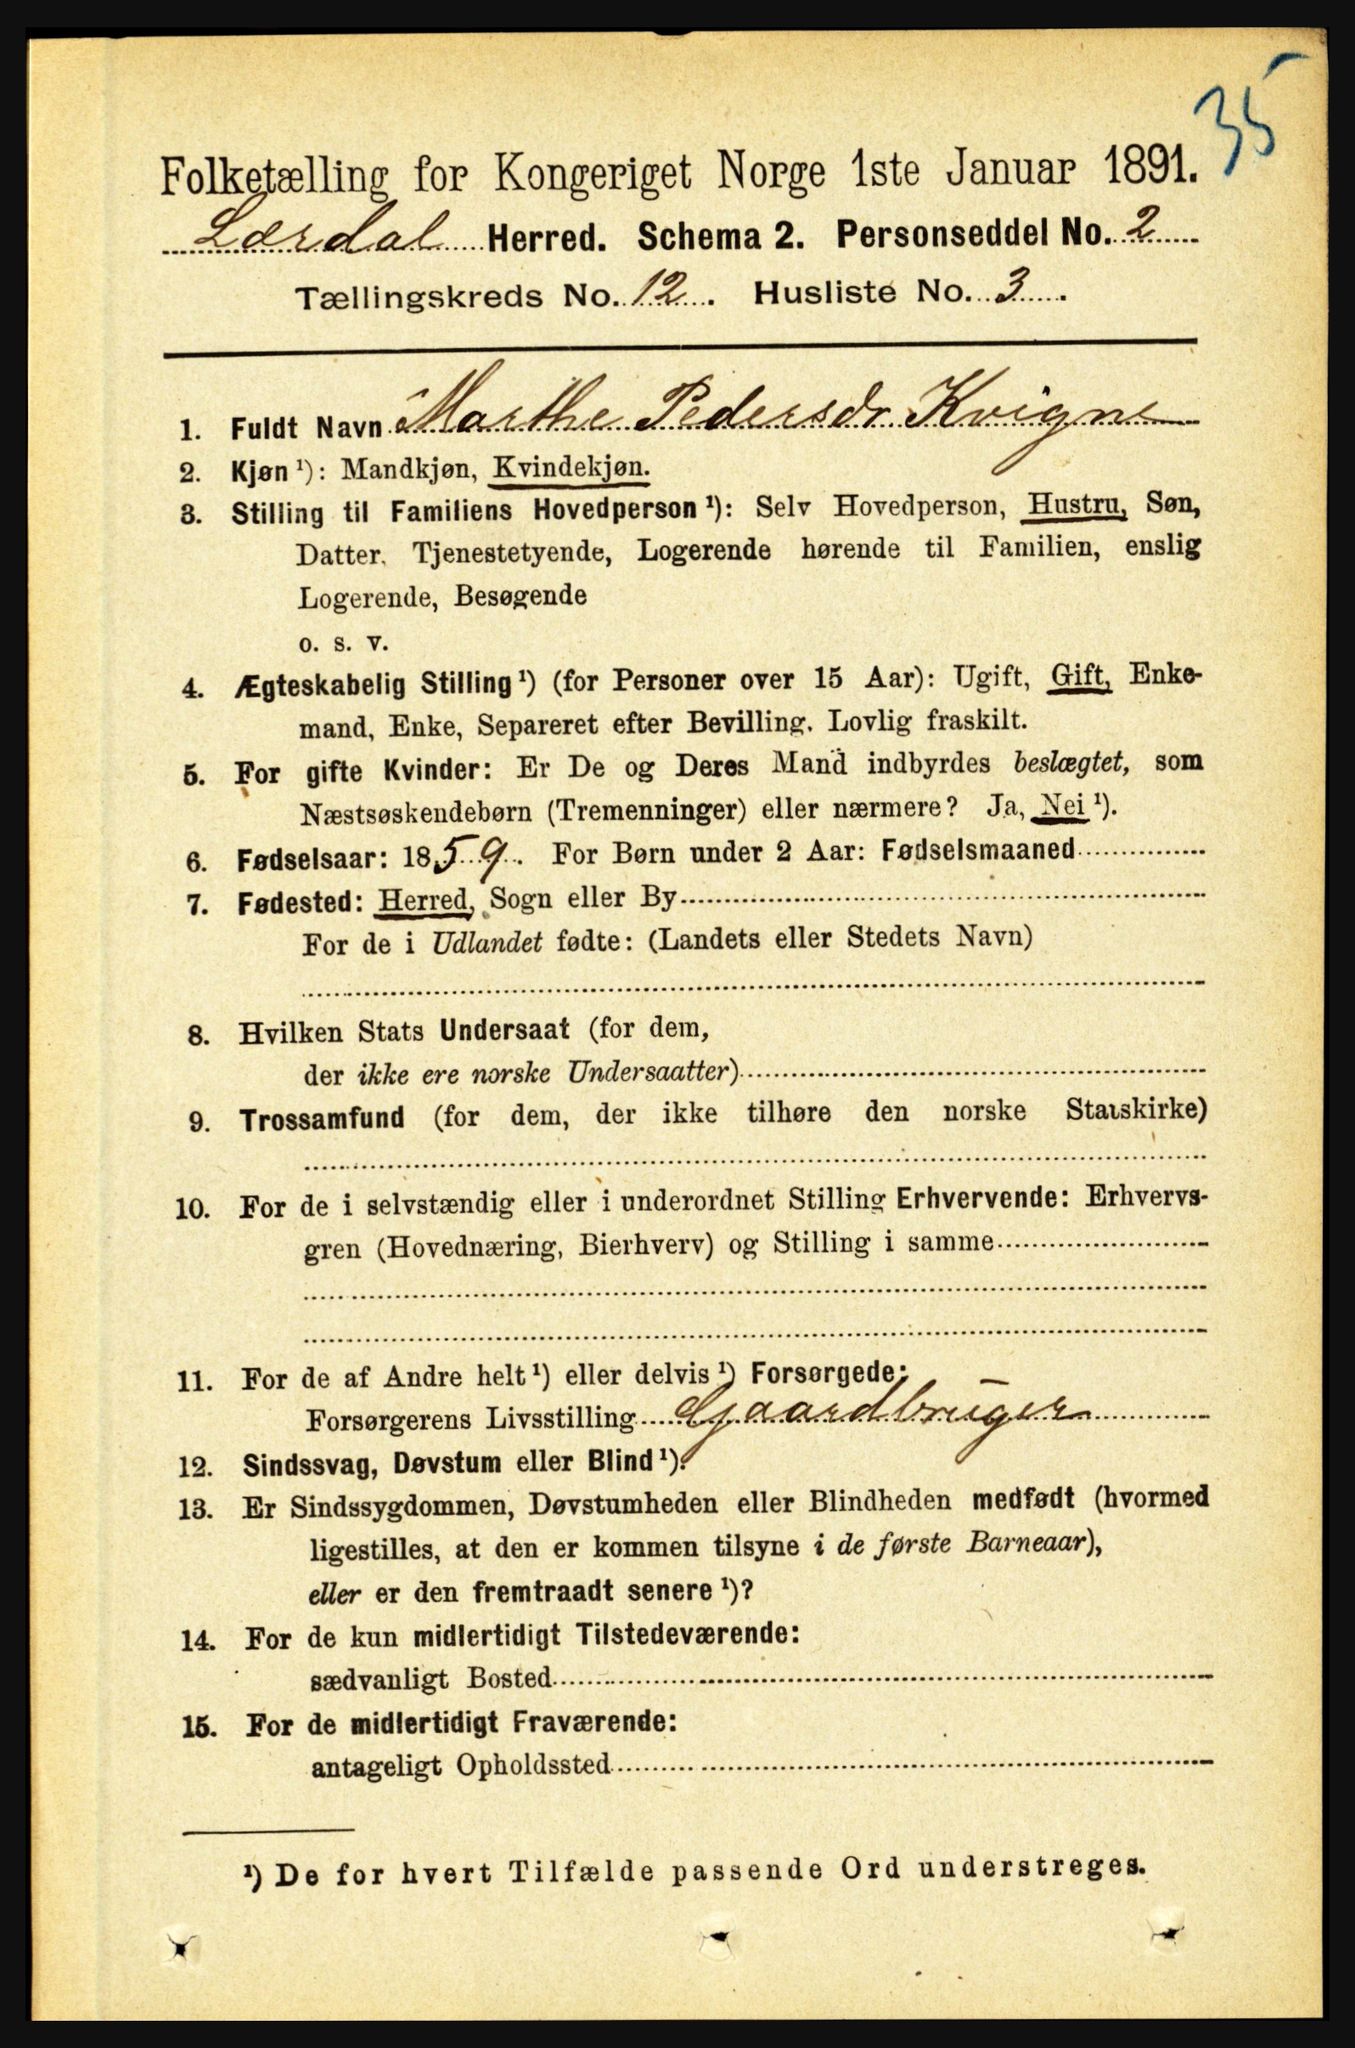 35
Folketælling for Kongeriget Norge 1ste Januar 1891.
Lærdal Herred. Schema 2. Personseddel No. 2
Tællingskreds No. 12. Husliste No. 3.
1. Fuldt Navn Marthe Pedersdr. Kvigne
2. Kjøn ¹): Mandkjøn, Kvindekjøn.
3. Stilling til Familiens Hovedperson ¹): Selv Hovedperson, Hustru, Søn,
Datter, Tjenestetyende, Logerende hørende til Familien, enslig
Logerende, Besøgende
o. s. v.
4. Ægteskabelig Stilling ¹) (for Personer over 15 Aar): Ugift, Gift, Enke-
mand, Enke, Separeret efter Bevilling. Lovlig fraskilt.
5. For gifte Kvinder: Er De og Deres Mand indbyrdes beslægtet, som
Næstsøskendebørn (Tremenninger) eller nærmere? Ja, Nei ¹).
6. Fødselsaar: 1859. For Børn under 2 Aar: Fødselsmaaned
7. Fødested: Herred, Sogn eller By
For de i Udlandet fødte: (Landets eller Stedets Navn)
8. Hvilken Stats Undersaat (for dem,
der ikke ere norske Undersaatter)
9. Trossamfund (for dem, der ikke tilhøre den norske Statskirke)
10. For de i selvstændig eller i underordnet Stilling Erhvervende: Erhvervs-
gren (Hovednæring, Bierhverv) og Stilling i samme
11. For de af Andre helt ¹) eller delvis ¹) Forsørgede:
Forsørgerens Livsstilling Gaardbruger
12. Sindssvag, Døvstum eller Blind ¹).
13. Er Sindssygdommen, Døvstumheden eller Blindheden medfødt (hvormed
ligestilles, at den er kommen tilsyne i de første Barneaar),
eller er den fremtraadt senere ¹)?
14. For de kun midlertidigt Tilstedeværende:
sædvanligt Bosted
15. For de midlertidigt Fraværende:
antageligt Opholdssted
¹) De for hvert Tilfælde passende Ord understreges.